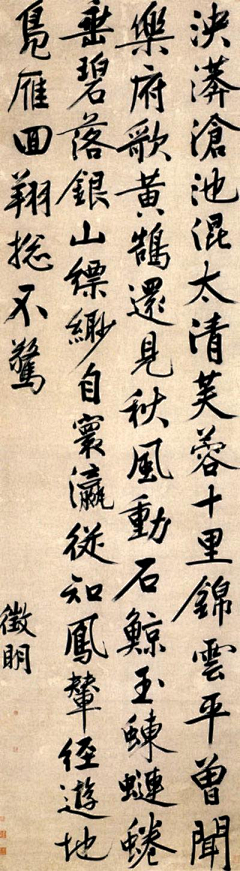 泱漭滄池混太清芙蓉十里錦雲平曾聞
樂府歌黃鵠還見秋風動石鯨玉蝀蜷
垂碧落銀山縹緲自寰瀛從知鳳輦經遊地
鳧雁回翔總不驚
徵明